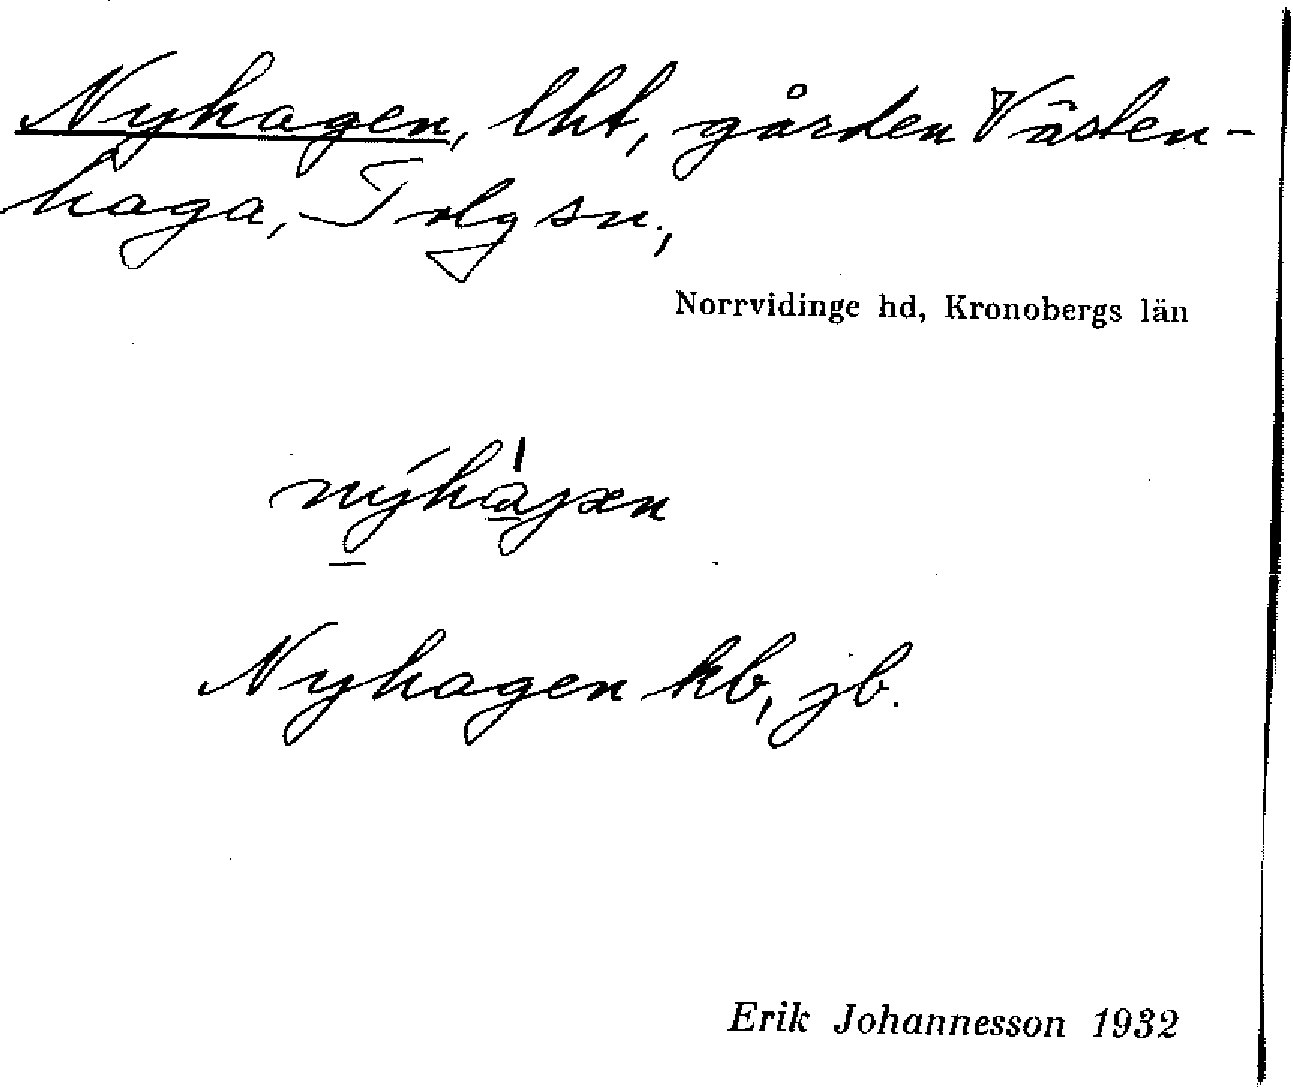 Nyhagen, lht, gården Västen-
haga, Tolg sn.,
Norrvidinge hd, Kronobergs län
Nyhagen kb, jb.
Erik Johannesson 1932